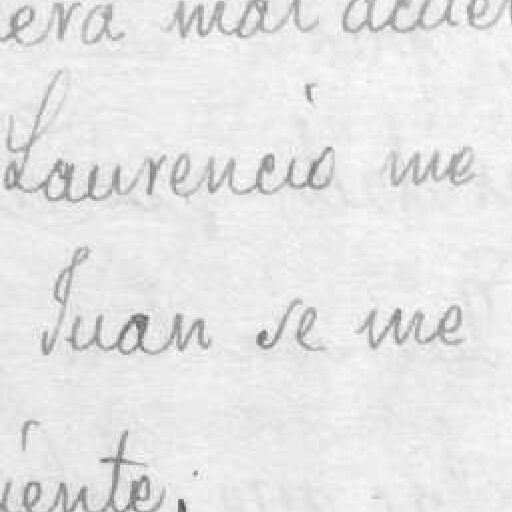 era mal acue
Laurencio me
Juan se me
iente.